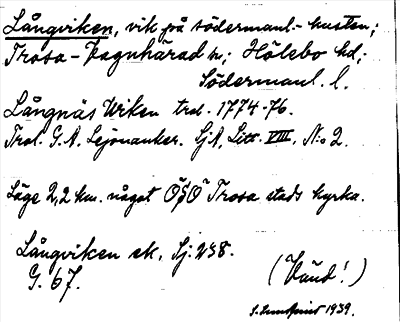 Långviken, vik på södermanl.- kusten;
Trosa-Vagnhärad sn; Hölebo hd;
Södermanl. l.
Långnäs Wiken trol. 1774-76.
Trol. G.A. Lejonanker. Sj.A, Litt. VIII, N:o 2.
Läge 2,2 km. något ÖSÖ Trosa stads kyrka.
Långviken ek. Sj: 238.
G. 67.
(Vänd!)
1939.